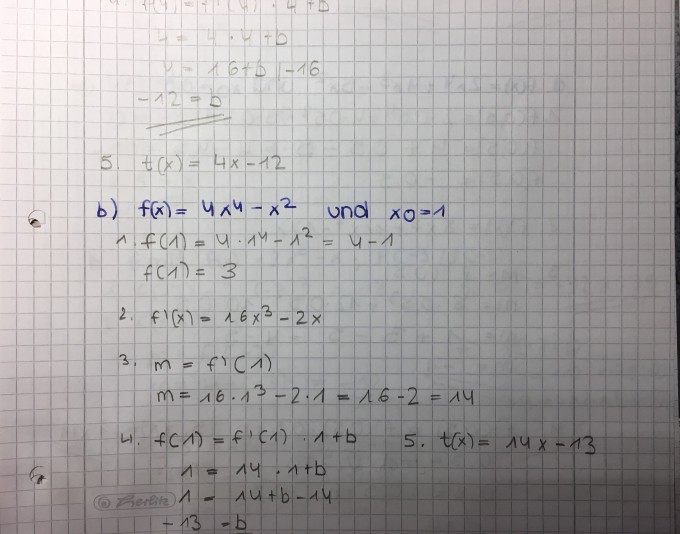 4. f(4) = f'(4) · 4 + b
4 = 4 · 4 + b
4 = 16 + b | -16
-12 = b
5. t(x) = 4x - 12
b) f(x) = 4x⁴ - x² und x0 = 1
1. f(1) = 4 · 1⁴ - 1² = 4 - 1
f(1) = 3
2. f'(x) = 16x³ - 2x
3. m = f'(1)
m = 16 · 1³ - 2 · 1 = 16 - 2 = 14
4. f(1) = f'(1) · 1 + b
1 = 14 · 1 + b
1 = 14 + b - 14
-13 = b
5. t(x) = 14x - 13
@Berlin